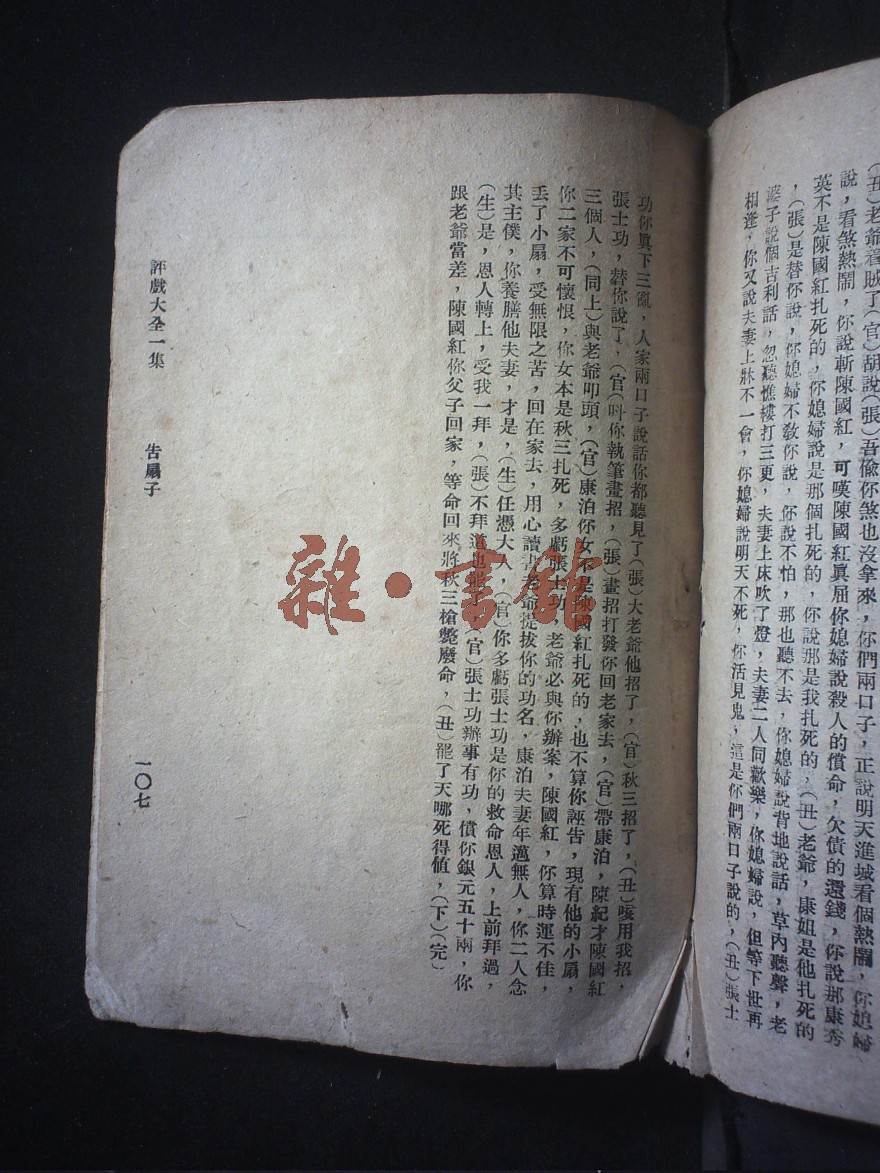 (丑)老爺着賊了(官)胡說(張)吾偷你煞也沒拿來，你們兩口子，正說明天進城看個熱鬧，你媳婦
說，看煞熱鬧，你說斬陳國紅，可嘆陳國紅眞屈你媳婦說殺人的償命，欠債的還錢，你說那康秀
英不是陳國紅扎死的，你媳婦說是那個扎死的，你說那是我扎死的，(丑)老爺，康姐是他扎死的
，(張)是替你說，你媳婦不敎你說，你說不怕，那也聽不去，你媳婦說背地說話，草內聽聲，老
婆子說個吉利話，忽聽樵樓打三更，夫妻上床吹了燈，夫妻二人同歡樂，你媳婦說，但等下世再
相逢，你又說夫妻上牀不一會，你媳婦說明天不死，你活見鬼，這是你們兩口子說的，(丑)張士
功你眞下三亂，人家兩口子說話你都聽見了(張)大老爺他招了，(官)秋三招了，(丑)咳用我招，
張士功，替你說了，(官(叫你執筆畫招，(張)畫招打發你回老家去，(官)帶康泊，陳紀才陳國紅
三個人，(同上)與老爺叩頭，(官)康泊你女不是陳國紅扎死的，也不算你誣告，現有他的小扇，
你二家不可懷恨，你女本是秋三扎死，多虧張士功，老爺必與你辦案，陳國紅，你算時運不佳，
丢了小扇，受無限之苦，回在家去，用心讀書老爺提拔你的功名，康泊夫妻年邁無人，你二人念
其主僕，你養膳他夫妻，才是，(生)任憑大人，(官)你多虧張士功是你的救命恩人，上前拜過，
(生)是，恩人轉上，受我一拜，(張)不拜道也罷了，(官)張士功辦事有功，償你銀元五十兩，你
跟老爺當差，陳國紅你父子回家，等命回來將秋三槍斃廢命，(丑)罷了天哪死得值，(下)(完)
評戲大全一集 告扇子
一〇七
雜·書館